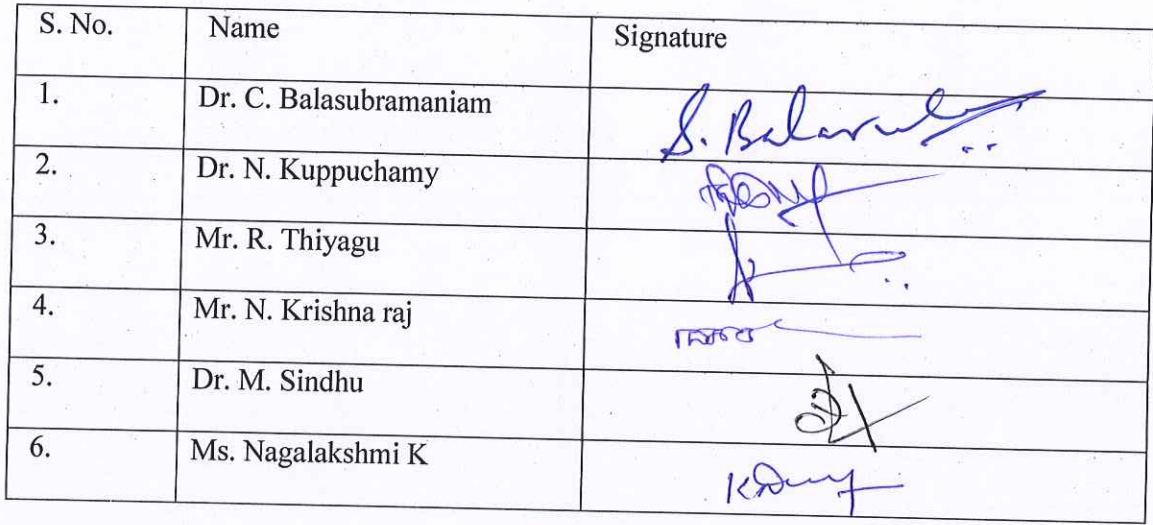 S. No. Name Signature
1. Dr. C. Balasubramaniam S. Balasu
2. Dr. N. Kuppuchamy
3. Mr. R. Thiyagu
4. Mr. N. Krishna raj
5. Dr. M. Sindhu
6. Ms. Nagalakshmi K